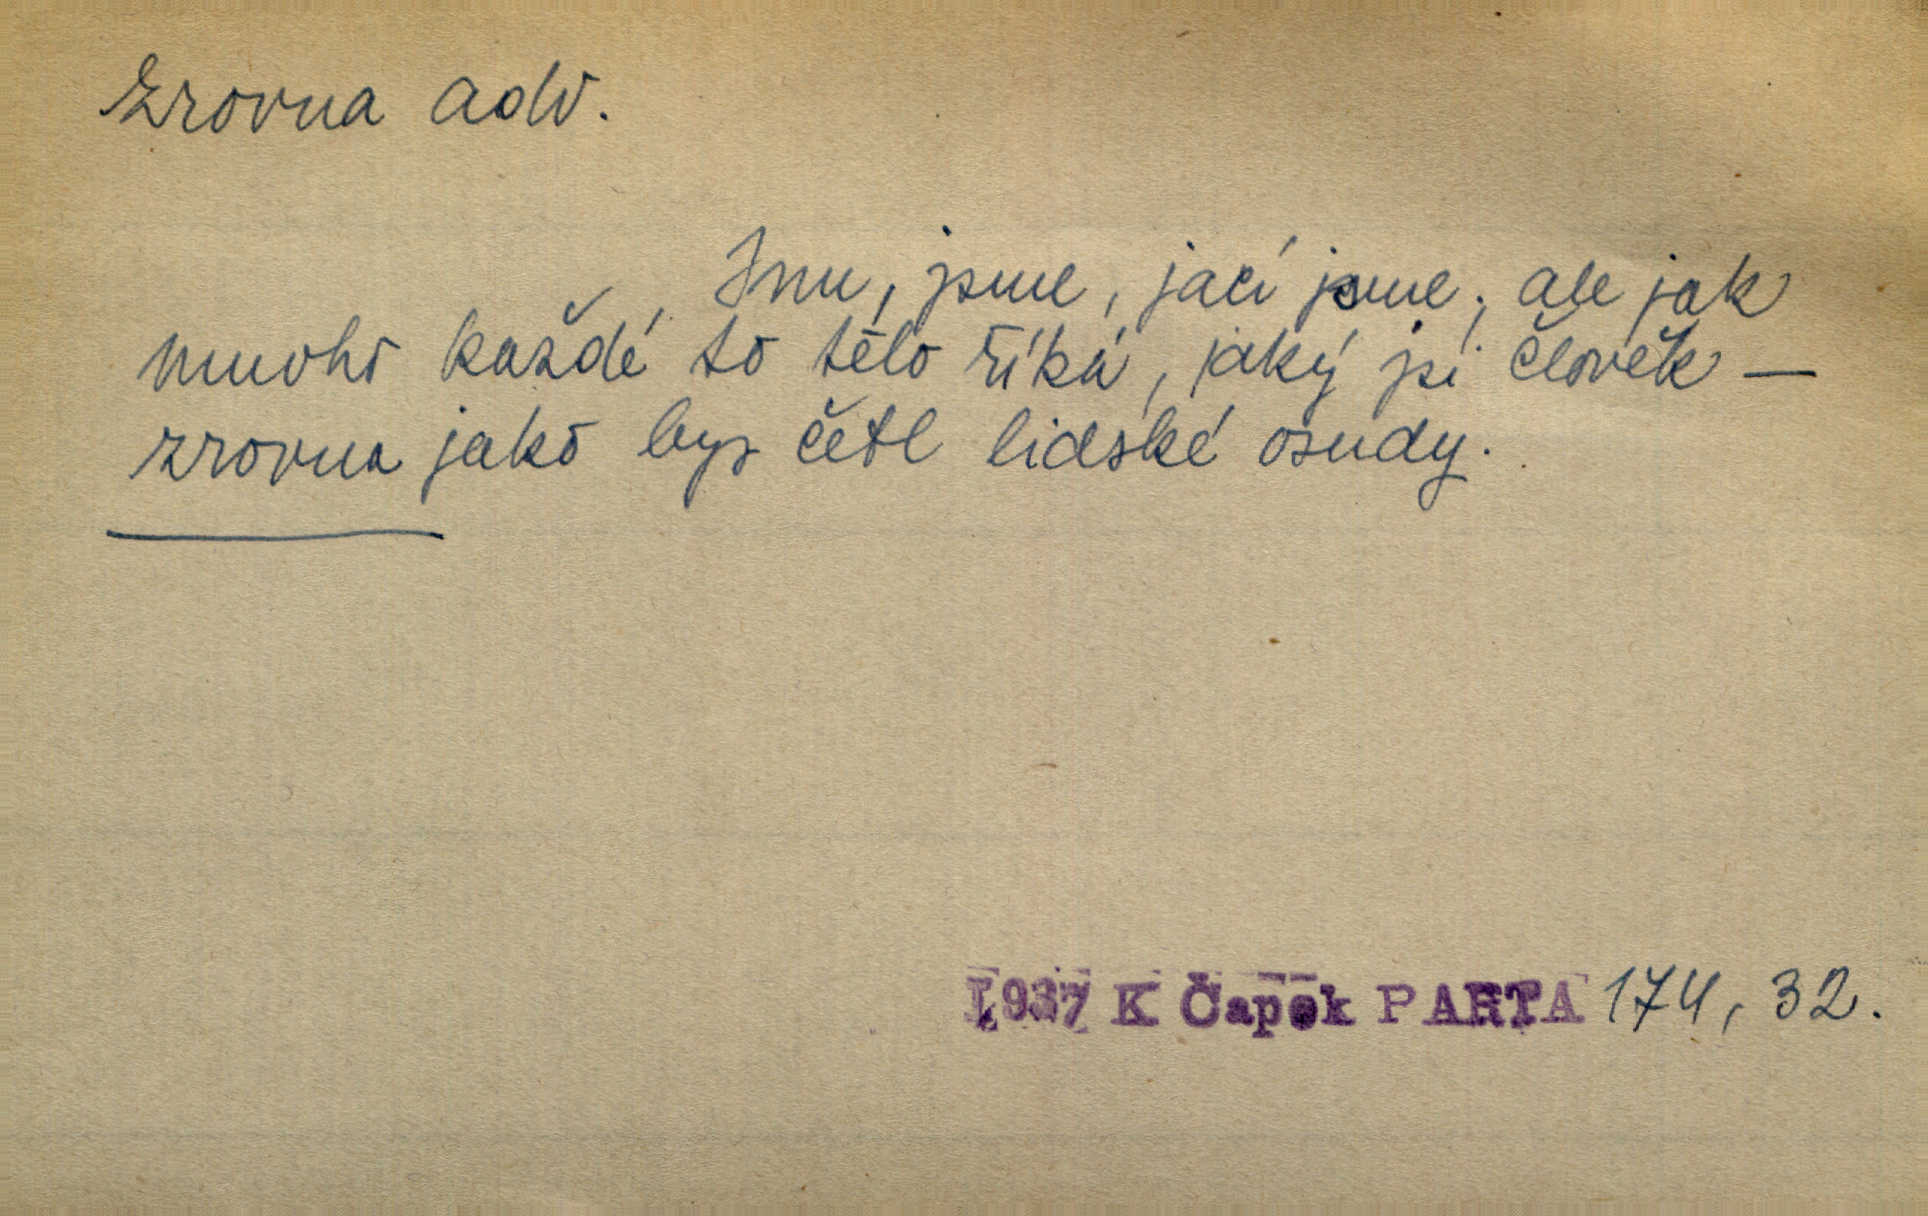 zrovna adv.
Inu, jsme, jací jsme; ale jak
mnoho každé to tělo říká, jaký jsi člověk —
zrovna jako bys četl lidské osudy.
1937 K Čapek PARTA 174, 32.